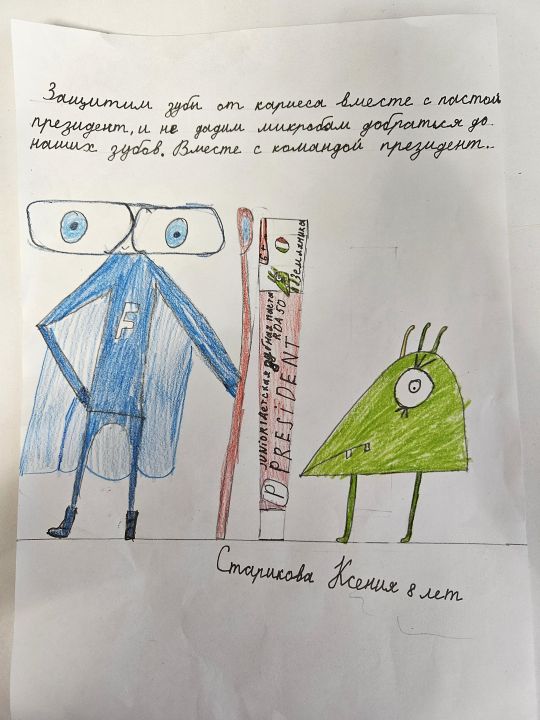 Защитим зубы от кариеса вместе с пастой
президент, и не дадим микробам добраться до
наших зубов. Вместе с командой президент..
F
6+
Земляника
JUNIOR
детская зубная паста
RDA 50
P PRESIDENT
Старикова Ксения 8 лет